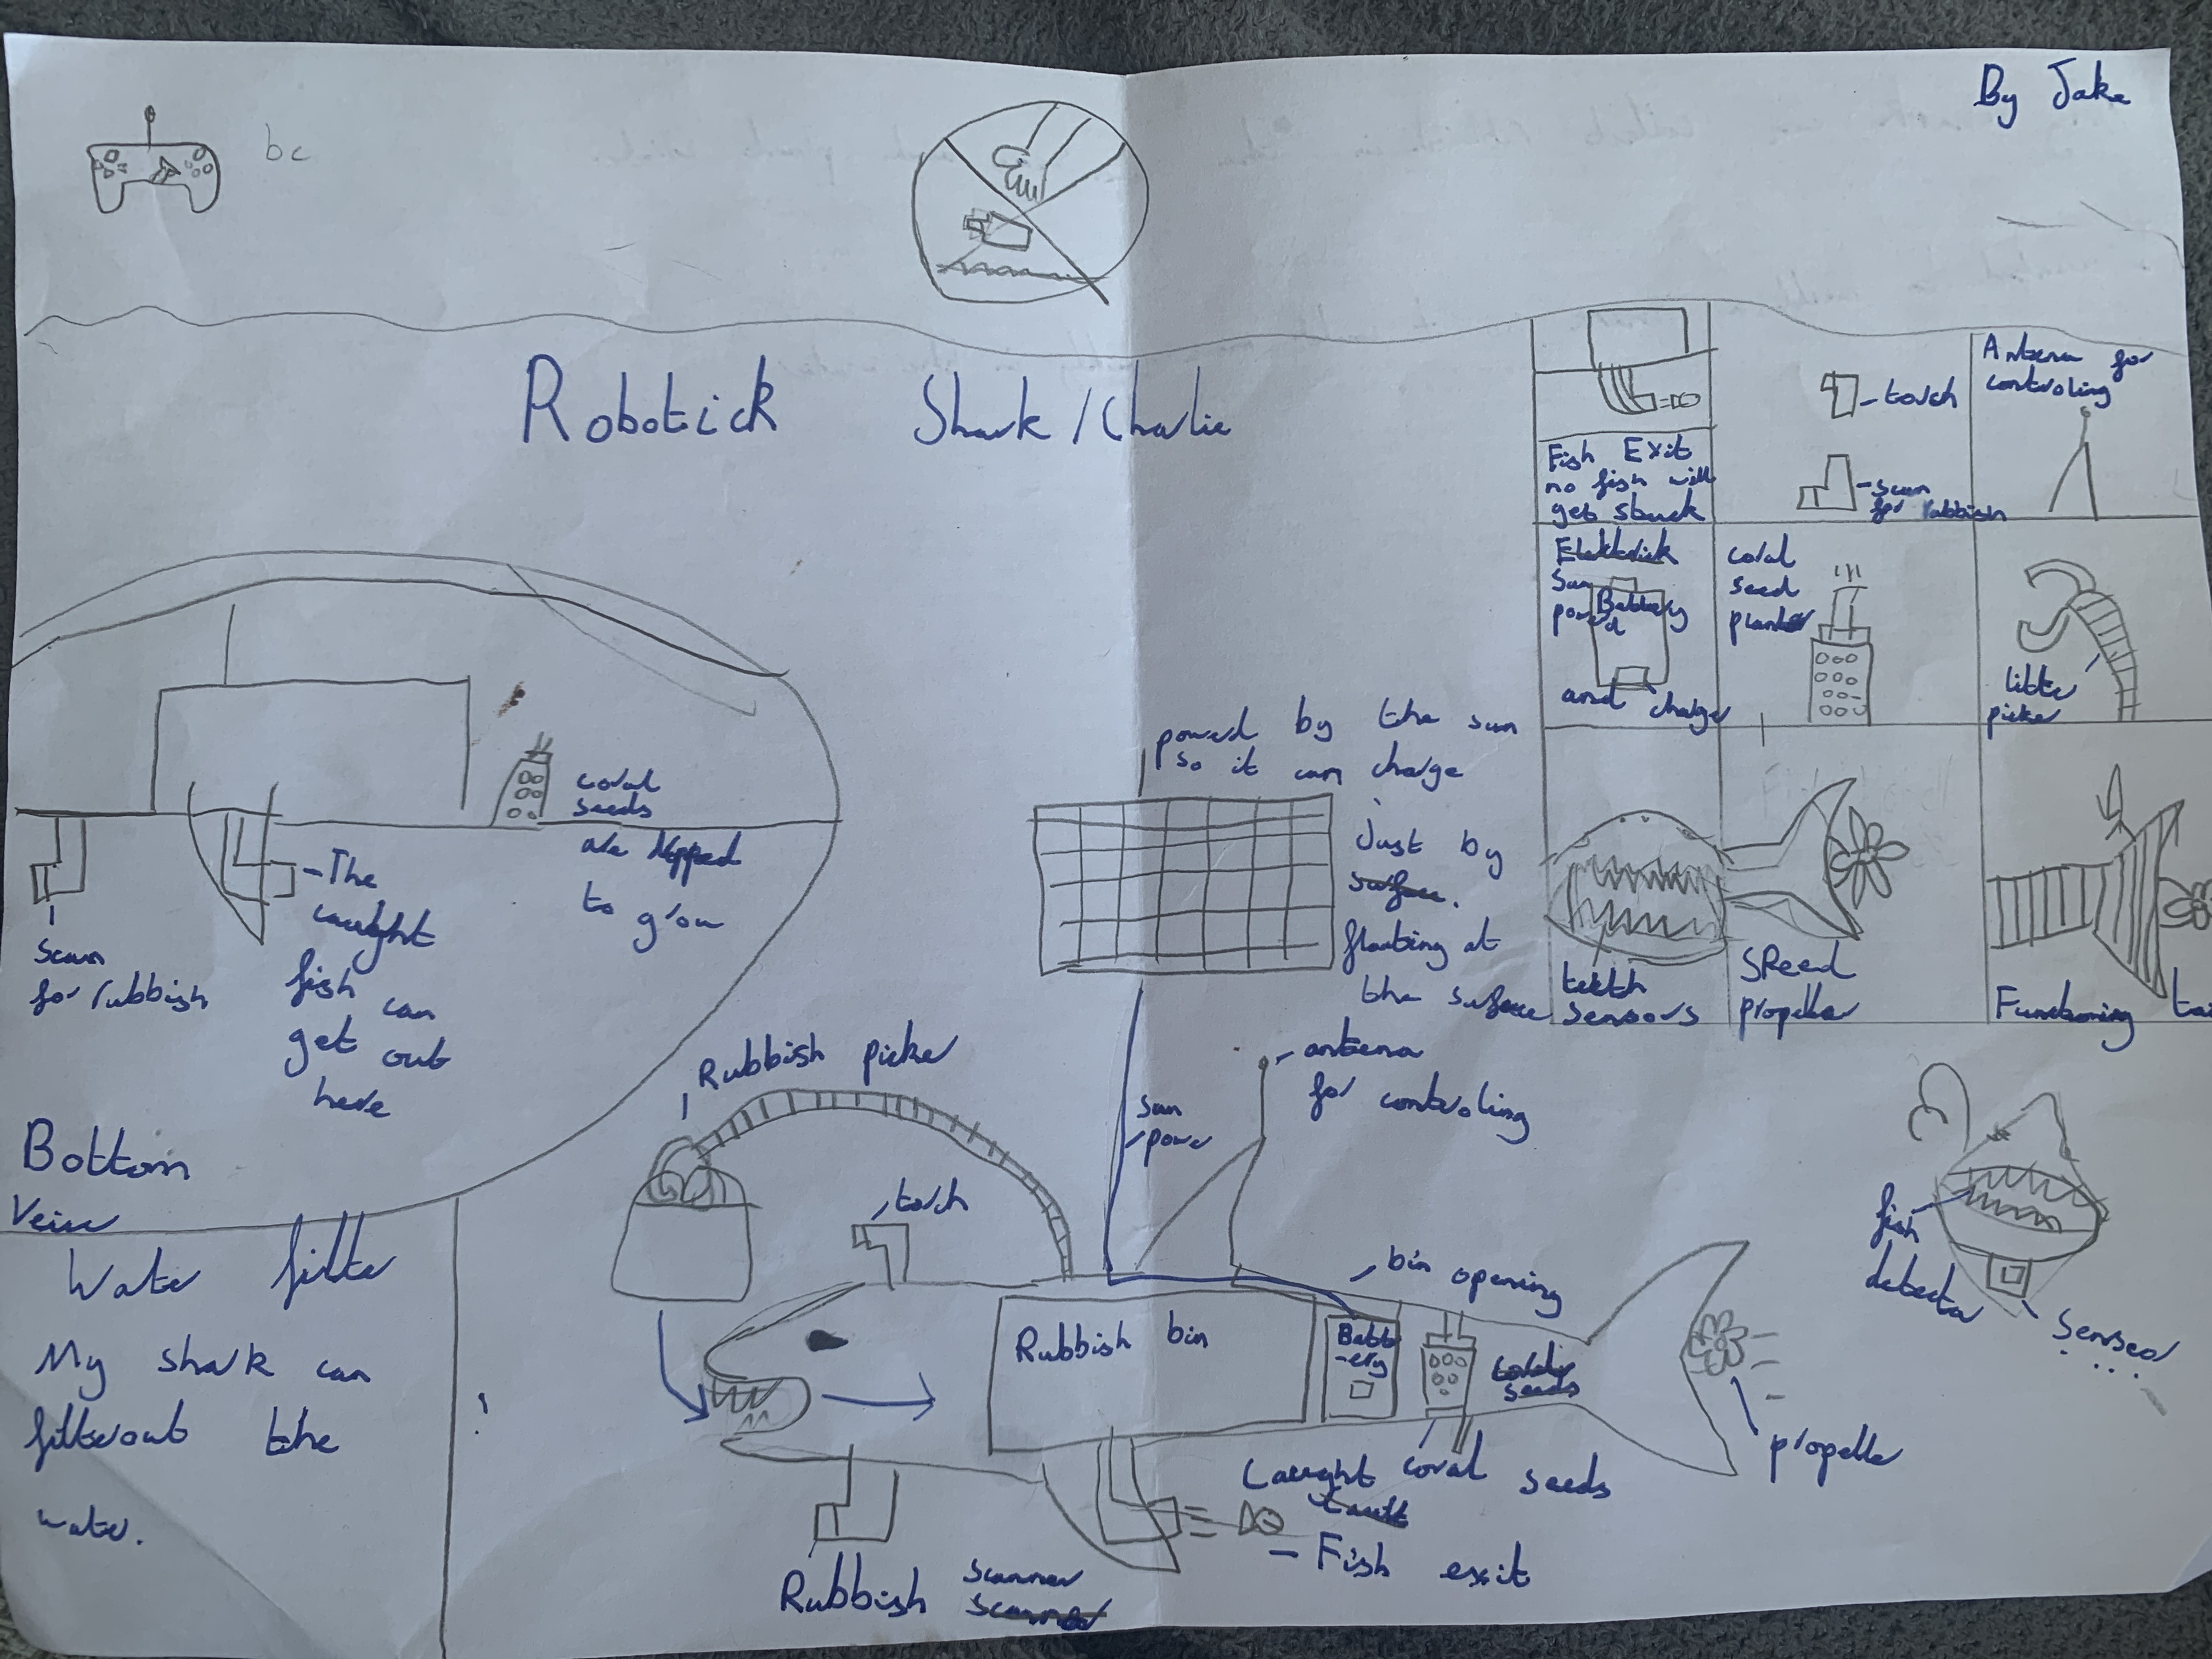 By Jake
bc
Robotick Shark / Charlie
Fish Exit
no fish will
get stuck
torch
scan
for rubbish
Antena for
controling
Elektrick
Sun Battery
powerd
and charger
coral
seed
planter
litter
picker
teeth
sensors
SPeed
propeller
Functioning tai
coral
seeds
are dropped
to grow
- The
caught
fish can
get out
here
Scan
for rubbish
Bottom
Veiw
powerd by the sun
so it can charge
Just by
surface.
floating at
the surface
sun
power
Rubbish picker
antena
for controling
torch
bin opening
Rubbish bin
Batt
-ery
coral
seeds
coral seeds
propeller
Caught
- Fish exit
Rubbish scanner
scanner
fish
detector
Sensor
...
Water filter
My shark can
filterout the
water.